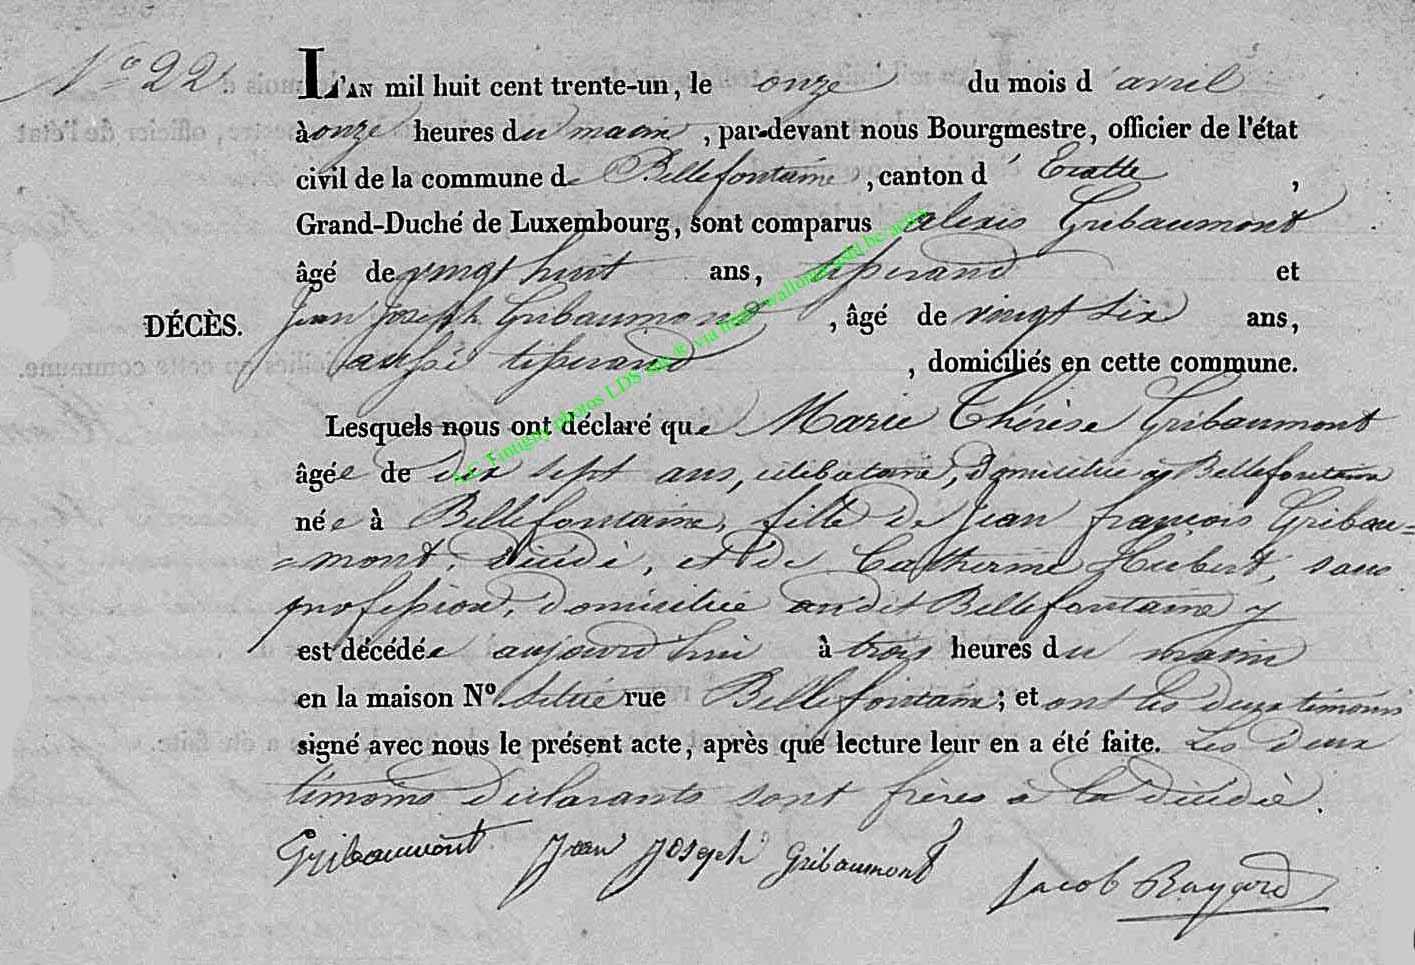 N° 22.
L'AN mil huit cent trente-un, le onze du mois d'avril
à onze heures du matin, par-devant nous Bourgmestre, officier de l'état
civil de la commune de Bellefontaine, canton d'Etalle,
Grand-Duché de Luxembourg, sont comparus alexis Gribaumont
âgé de vingt huit ans, tisserand et
DÉCÈS.
Jean Joseph Gribaumont, âgé de vingt six ans,
aussi tisserand, domiciliés en cette commune.
Lesquels nous ont déclaré que Marie Thérèse Gribaumont
âgée de dix sept ans, célibataire, Domiciliée à Bellefontaine
née à Bellefontaine, fille de Jean françois Gribau=
=mont, décédé, et de Catherine Hubert, sans
profession, domiciliée audit Bellefontaine y
est décédée aujourd'hui à trois heures du matin
en la maison N° située rue Bellefontaine; et ont les deux témoins
signé avec nous le présent acte, après que lecture leur en a été faite. Les deux
témoins déclarants sont frères à la décédée.
Gribaumont Jean Joseph Gribaumont Jacob
A.C. Tintigny photos LDS sur ® via http://wallonia-asbl.be/actes